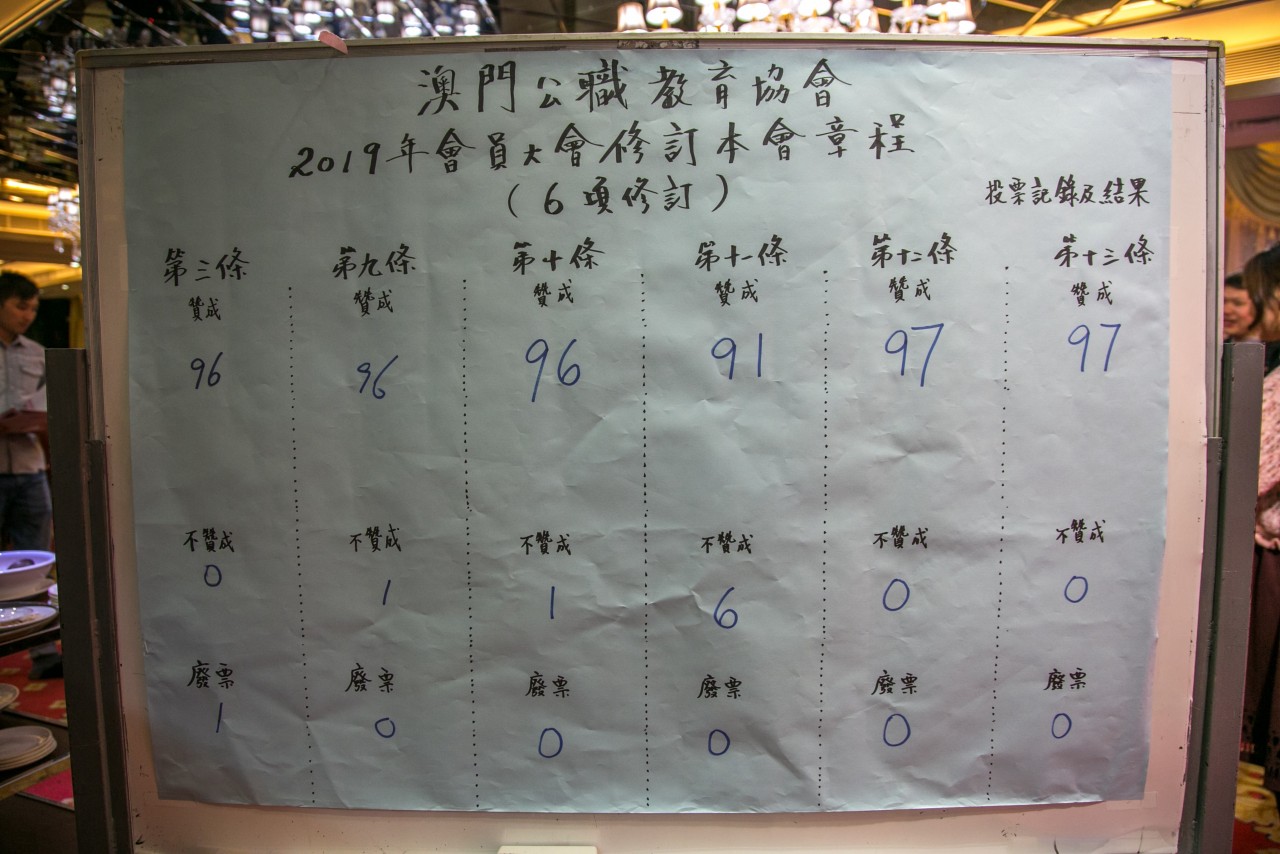 澳門公職教育協會
2019年會員大會修訂本會章程
（6項修訂）
投票記錄及結果
第三條 第九條 第十條 第十一條 第十二條 第十三條
贊成 贊成 贊成 贊成 贊成 贊成
96 96 96 91 97 97
不贊成 不贊成 不贊成 不贊成 不贊成 不贊成
0 1 1 6 0 0
廢票 廢票 廢票 廢票 廢票 廢票
1 0 0 0 0 0